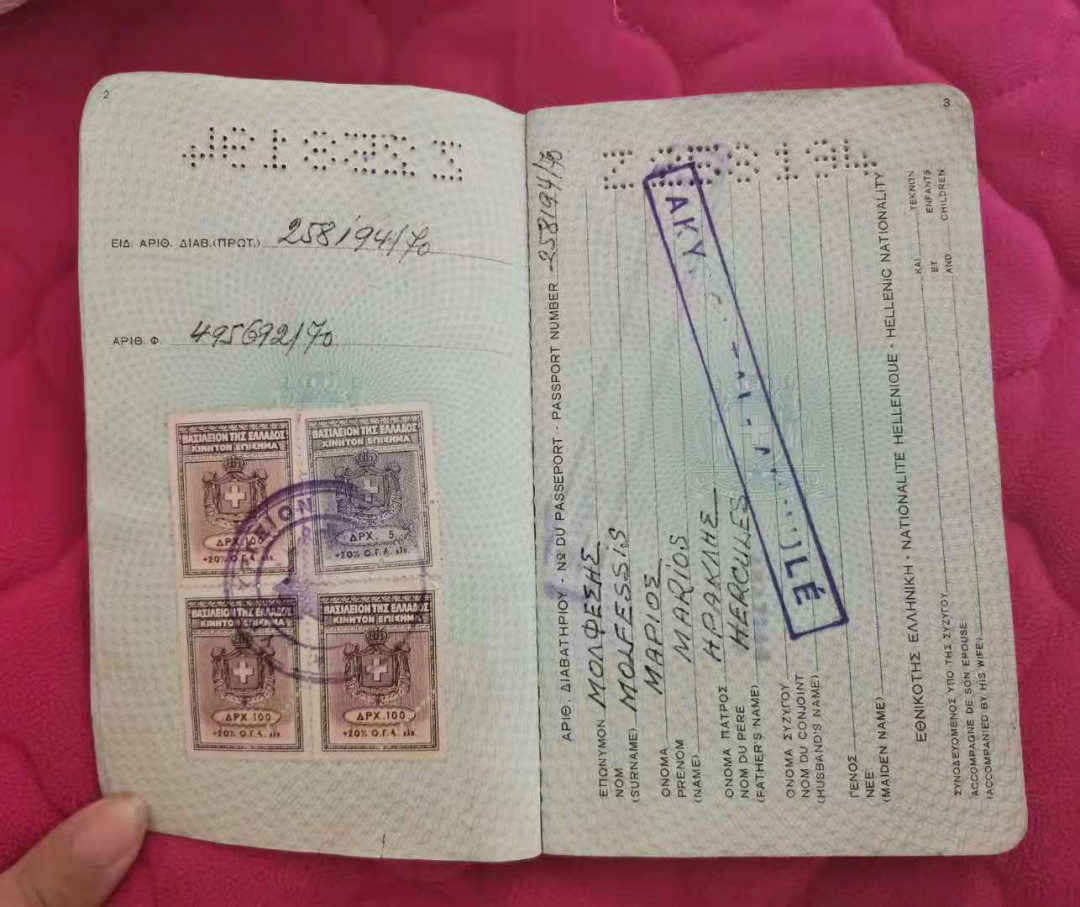 2
ΕΙΔ. ΑΡΙΘ. ΔΙΑΒ.(ΠΡΩΤ.) 258194/70
ΑΡΙΘ. Φ. 495692/70
ΒΑΣΙΛΕΙΟΝ ΤΗΣ ΕΛΛΑΔΟΣ
ΚΙΝΗΤΟΝ ΕΠΙΣΗΜΑ
ΔΡΧ. 100
+20% Ο.Γ.Α.
ΒΑΣΙΛΕΙΟΝ ΤΗΣ ΕΛΛΑΔΟΣ
ΚΙΝΗΤΟΝ ΕΠΙΣΗΜΑ
ΔΡΧ. 5
+20% Ο.Γ.Α.
ΒΑΣΙΛΕΙΟΝ ΤΗΣ ΕΛΛΑΔΟΣ
ΚΙΝΗΤΟΝ ΕΠΙΣΗΜΑ
ΔΡΧ. 100
+20% Ο.Γ.Α.
ΒΑΣΙΛΕΙΟΝ ΤΗΣ ΕΛΛΑΔΟΣ
ΚΙΝΗΤΟΝ ΕΠΙΣΗΜΑ
ΔΡΧ. 100
+20% Ο.Γ.Α.
3
Ζ 258194
ΑΡΙΘ. ΔΙΑΒΑΤΗΡΙΟΥ - Νο DU PASSEPORT - PASSPORT NUMBER 258194/70
ΕΠΩΝΥΜΟΝ ΜΟΛΦΕΣΗΣ
NOM MOLFESSIS
(SURNAME)
ΟΝΟΜΑ ΜΑΡΙΟΣ
PRENOM MARIOS
(NAME)
ΟΝΟΜΑ ΠΑΤΡΟΣ ΗΡΑΚΛΗΣ
NOM DU PERE HERCULES
(FATHER'S NAME)
ΟΝΟΜΑ ΣΥΖΥΓΟΥ
NOM DU CONJOINT
(HUSBAND'S NAME)
ΓΕΝΟΣ
NEE
(MAIDEN NAME)
ΕΘΝΙΚΟΤΗΣ ΕΛΛΗΝΙΚΗ - NATIONALITE HELLENIQUE - HELLENIC NATIONALITY
ΣΥΝΟΔΕΥΟΜΕΝΟΣ ΥΠΟ ΤΗΣ ΣΥΖΥΓΟΥ ΚΑΙ ΤΕΚΝΩΝ
ACCOMPAGNE DE SON EPOUSE ET ENFANTS
(ACCOMPANIED BY HIS WIFE) AND CHILDREN